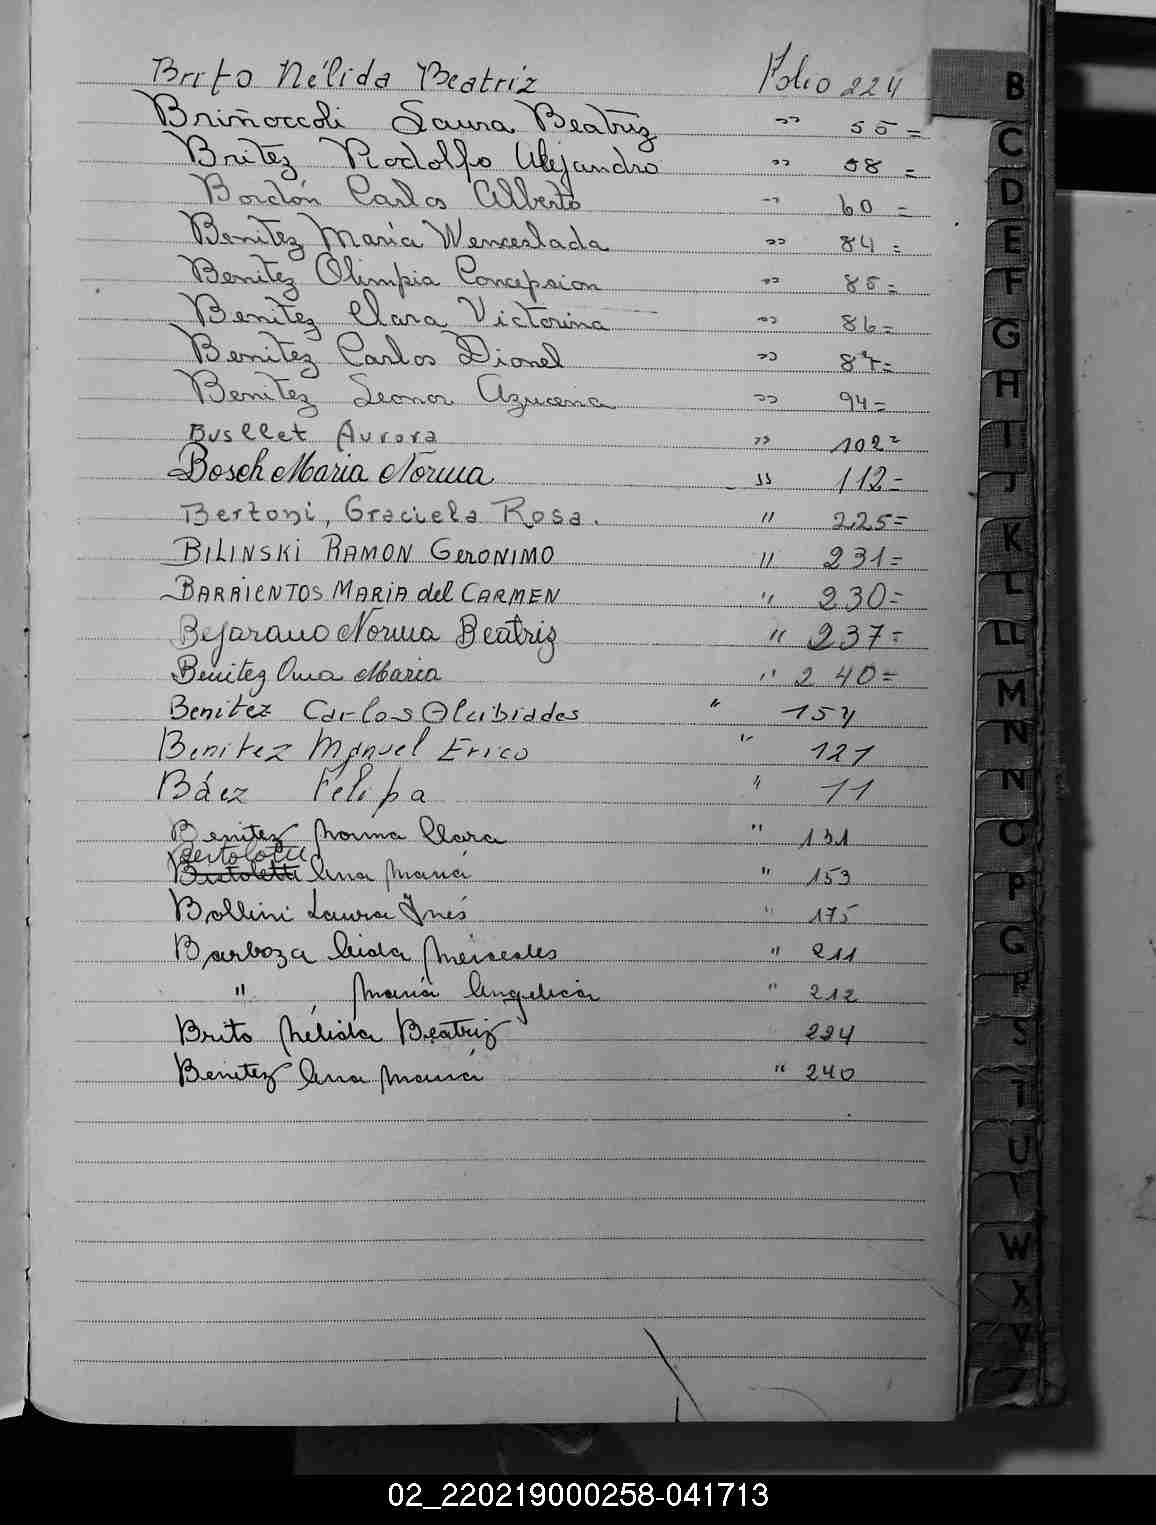 Brito Nélida Beatriz Folio 224
Briñoccoli Laura Beatriz " 55=
Britez Rodolfo Alejandro " 58 =
Bordón Carlos Alberto " 60 =
Benitez María Wenceslada " 84 =
Benitez Olimpia Concepsion " 85=
Benitez Clara Victorina " 86=
Benitez Carlos Dionel " 87=
Benitez Leonor Azucena " 94=
Busllet Aurora " 102=
Bosch Maria Norma " 112=
Bertoni, Graciela Rosa. " 225=
BILINSKI RAMON GERONIMO " 231=
BARRIENTOS MARIA del CARMEN " 230=
Bejarano Norma Beatriz " 237=
Benitez Ana Maria " 240=
Benitez Carlos Alcibiades " 154
Benitez Manuel Erico " 121
Báez Felipa " 11
Benitez Norma Clara " 131
Bertolotti
Ana María " 153
Bollini Laura Inés " 175
Barboza Aida Mercedes " 211
" María Angelica " 212
Brito Nélida Beatriz 224
Benitez Ana María " 240
B
C
D
E
F
G
H
I
J
K
L
LL
M
N
N
O
P
Q
R
S
T
U
V
W
X
Y
Z
02_220219000258-041713